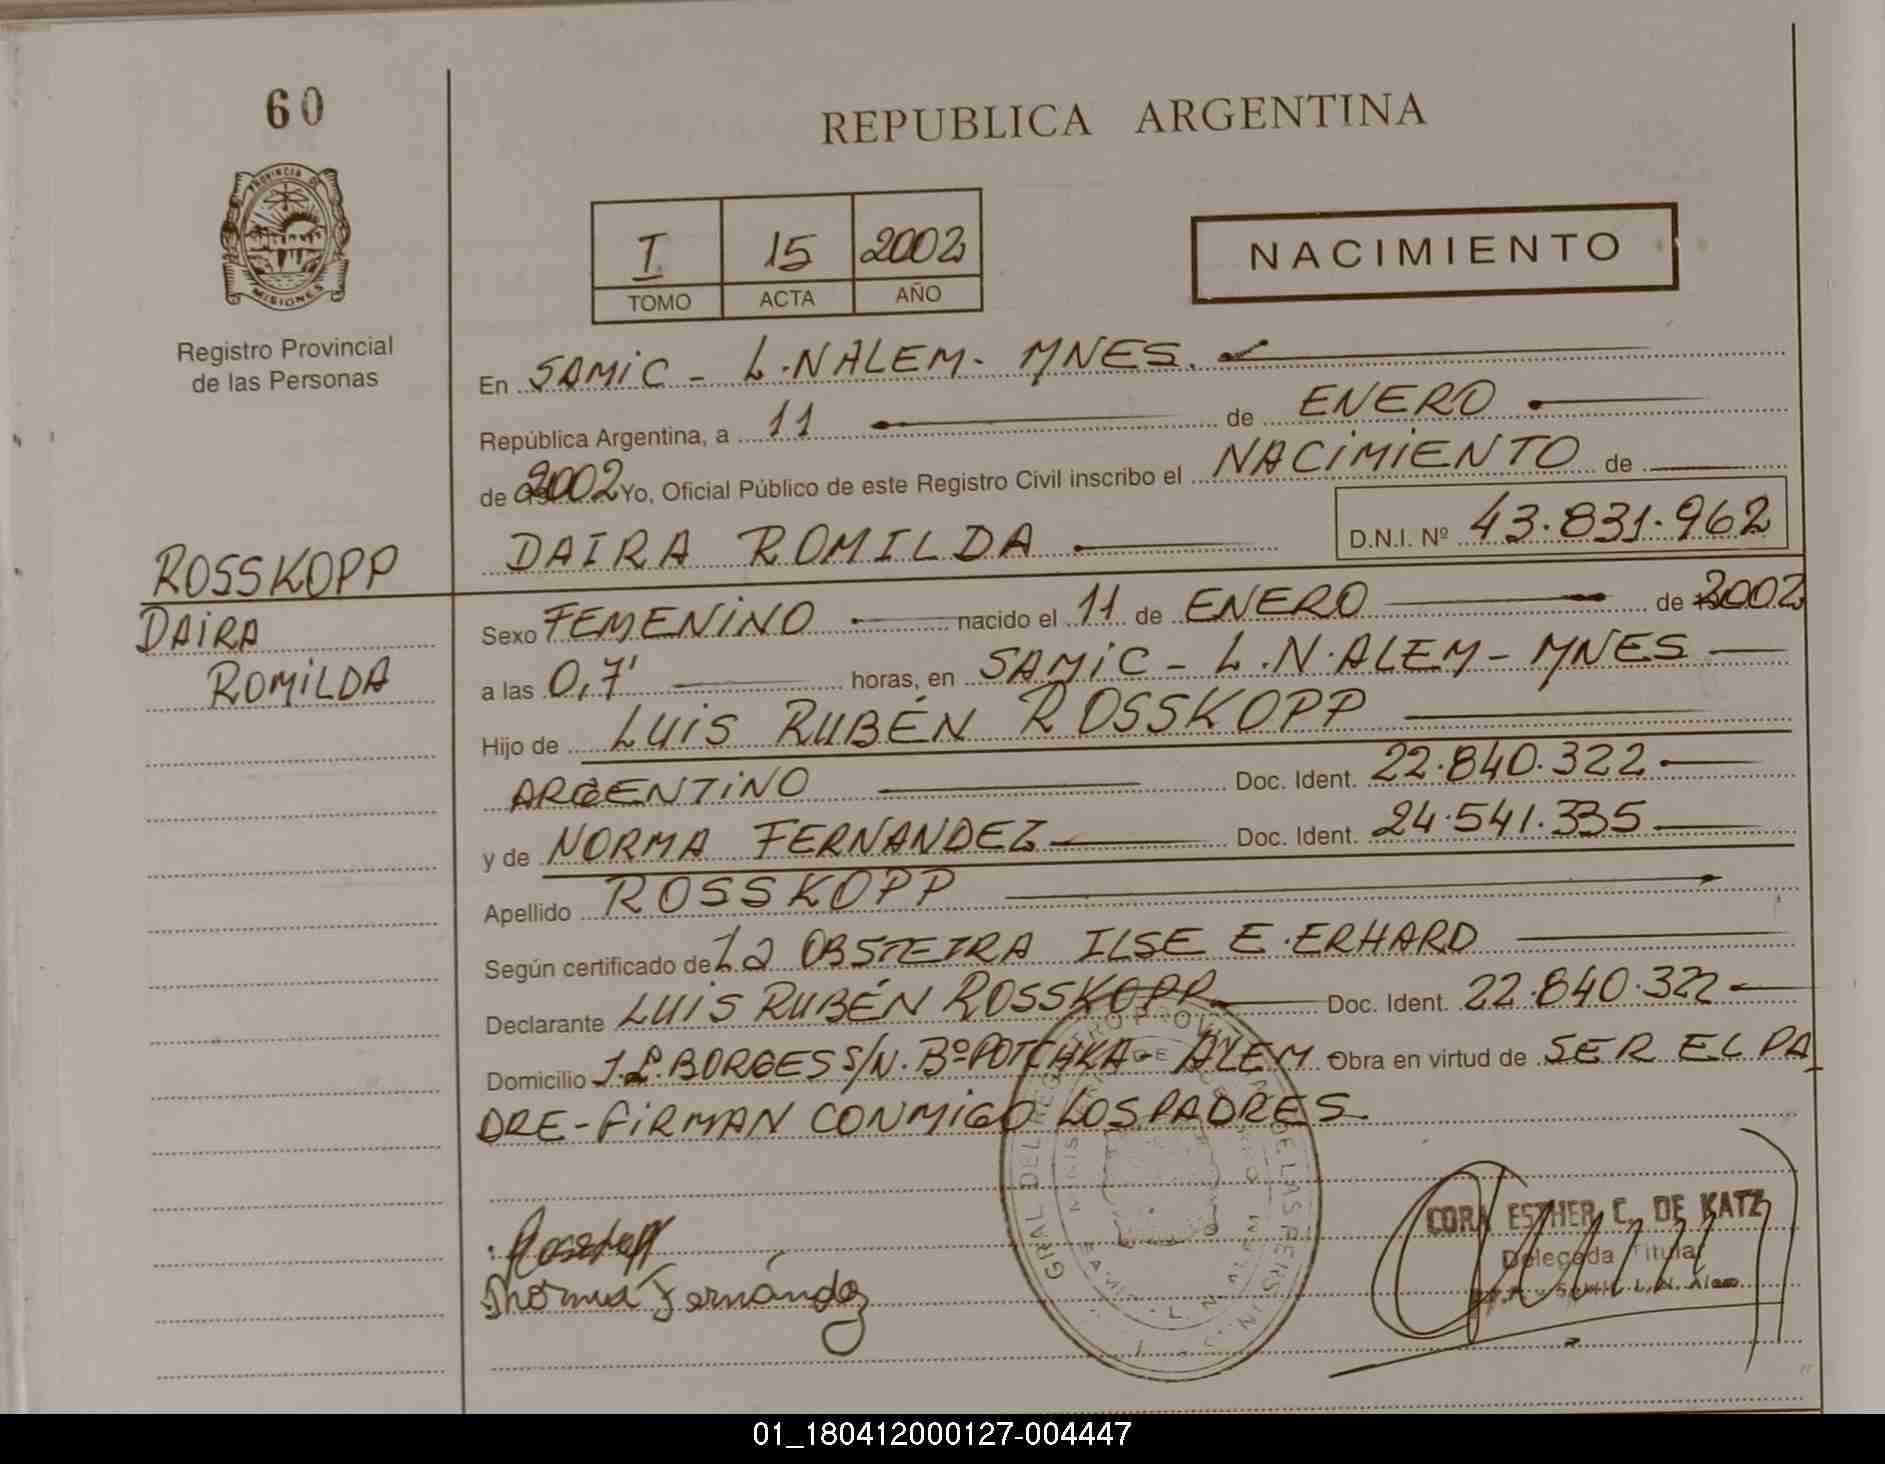 60
PROVINCIA DE
MISIONES
Registro Provincial
de las Personas
ROSSKOPP
DAIRA
ROMILDA
REPUBLICA ARGENTINA
I 15 2002
TOMO ACTA AÑO
NACIMIENTO
En SAMIC - L.N ALEM - MNES.
República Argentina, a 11 de ENERO
de 2002 Yo, Oficial Público de este Registro Civil inscribo el NACIMIENTO de
DAIRA ROMILDA D.N.I. Nº 43.831.962
Sexo FEMENINO nacido el 11 de ENERO de 2002
a las 0,7' horas, en SAMIC - L.N.ALEM - MNES
Hijo de LUIS RUBÉN ROSSKOPP
ARGENTINO Doc. Ident. 22.840.322
y de NORMA FERNANDEZ Doc. Ident. 24.541.335
Apellido ROSSKOPP
Según certificado de La OBSTETRA ILSE E. ERHARD
Declarante LUIS RUBÉN ROSSKOPP Doc. Ident. 22.840.322
Domicilio J.L. BORGES S/N. Bº POTCHKA - ALEM Obra en virtud de SER EL PA
DRE - FIRMAN CONMIGO LOS PADRES.
Norma Fernández
CORA ESTHER C. DE KATZ
Delegada Titular
L.N. Alem
01_180412000127-004447